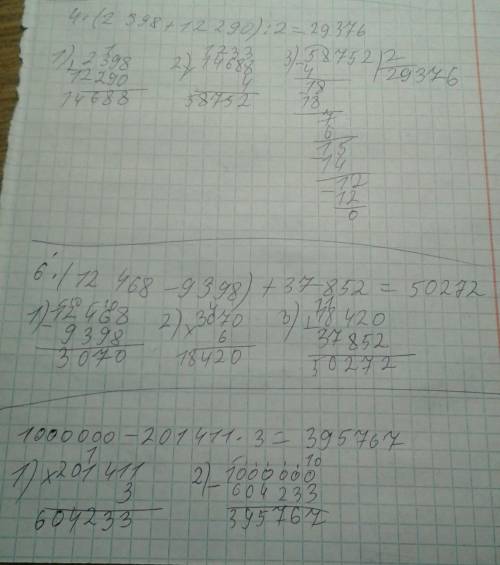 4·(2 398 + 12 290) : 2 = 29376
1) + 2398
12290
14688
2) × 14688
4
58752
3) - 58752 | 2
4 29376
- 18
18
- 7
6
- 15
14
- 12
12
0
6·(12 468 - 9398) + 37 852 = 50272
1) - 12468
9398
3070
2) × 3070
6
18420
3) + 18420
37852
50272
1000000 - 201411 · 3 = 395767
1) × 201411
3
604233
2) - 1000000
604233
395767